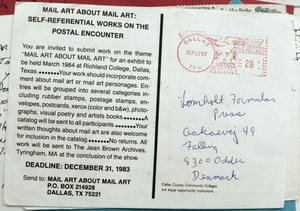 MAIL ART ABOUT MAIL ART:
SELF-REFERENTIAL WORKS ON THE
POSTAL ENCOUNTER
You are invited to submit work on the theme
"MAIL ART ABOUT MAIL ART" for an exhibit to
be held March 1984 at Richland College, Dallas,
Texas. Your work should incorporate comment
about mail art or mail art personages. Entries
will be grouped into several categories including
rubber stamps, postage stamps, envelopes,
postcards, xerox (color and b&w), photographs,
visual poetry and artists books. A
catalog will be sent to all participants. Your
written thoughts about mail art are also welcome
for inclusion in the catalog. No returns. All
work will be sent to The Jean Brown Archives,
Tyringham, MA at the conclusion of the show.
DEADLINE: DECEMBER 31, 1983
Send to: MAIL ART ABOUT MAIL ART
P.O. BOX 214928
DALLAS, TX 75221
DALLAS
TEX
SEP12'83
28
Lomholt Formular
Press
9300 Odder
Denmark
Dallas County Community Colleges
are equal opportunity institutions.